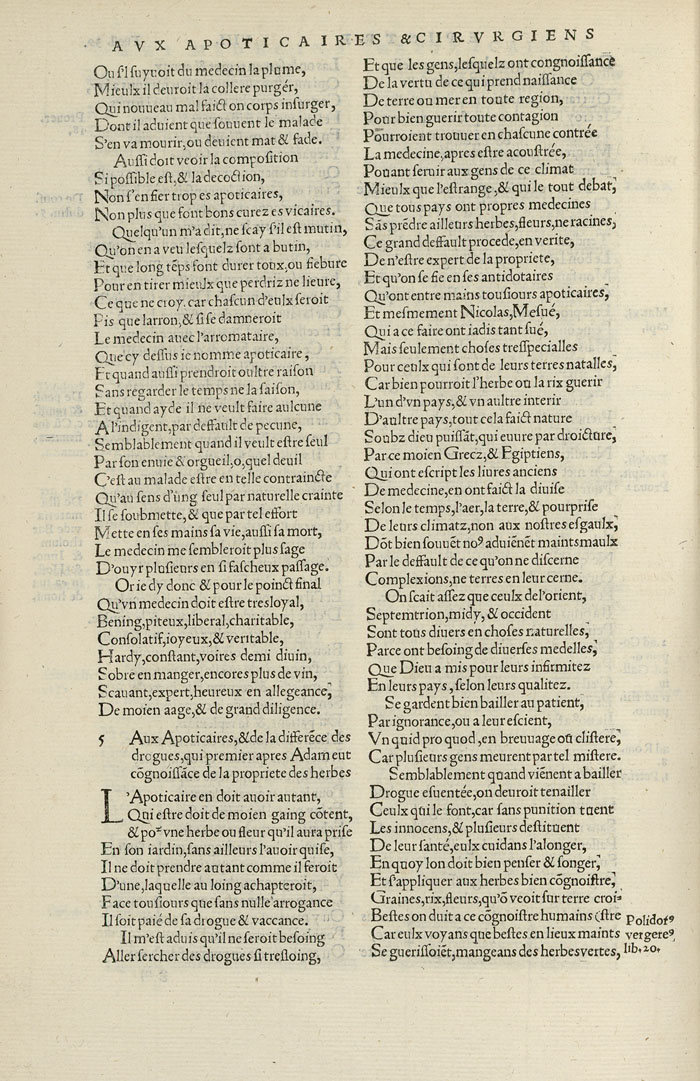 AVX APOTICAIRES & CIRVRGIENS
Ou s'il suyuoit du medecin la plume,
Mieulx il deuroit la collere purgér,
Qui nouueau mal faict on corps insurger,
Dont il aduient que souuent le malade
S'en va mourir, ou deuient mat & fade.
Aussi doit veoir la composition
Si possible est, & la decoction,
Non s'en fier trop es apoticaires,
Non plus que font bons curez es vicaires.
Quelqu'un m'a dit, ne scay s'il est mutin,
Qu'on en a veu lesquelz sont a butin,
Et que long tēps font durer toux, ou fiebure
Pour en tirer mieulx que perdriz ne lieure,
Ce que ne croy. car chascun d'eulx seroit
Pis que larron, & si se damneroit
Le medecin auec l'arromataire,
Que cy dessus ie nomme apoticaire,
Et quand aussi prendroit oultre raison
Sans regarder le temps ne la saison,
Et quand ayde il ne veult faire aulcune
A l'indigent, par deffault de pecune,
Semblablement quand il veult estre seul
Par son enuie & orgueil, o, quel deuil
C'est au malade estre en telle contraincte
Qu'au sens d'ūng seul par naturelle crainte
Il se soubmette, & que par tel effort
Mette en ses mains sa vie, aussi sa mort,
Le medecin me sembleroit plus sage
D'ouyr plusieurs en si fascheux passage.
Or ie dy donc & pour le poinct final
Qu'vn medecin doit estre tresloyal,
Bening, piteux, liberal, charitable,
Consolatif, ioyeux, & veritable,
Hardy, constant, voires demi diuin,
Sobre en manger, encores plus de vin,
Scauant, expert, heureux en allegeance,
De moien aage, & de grand diligence.
5 Aux Apoticaires, & de la differēce des
drogues, qui premier apres Adam eut
cōgnoissāce de la propriete des herbes
L'Apoticaire en doit auoir autant,
Qui estre doit de moien gaing cōtent,
& por vne herbe ou fleur qu'il aura prise
En son iardin, sans ailleurs l'auoir quise,
Il ne doit prendre autant comme il feroit
D'une, laquelle au loing achapteroit,
Face tousiours que sans nulle arrogance
Il soit paié de sa drogue & vaccance.
Il m'est aduis qu'il ne seroit besoing
Aller sercher des drogues si tresloing,
Et que les gens, lesquelz ont congnoissāce
De la vertu de ce qui prend naissance
De terre ou mer en toute region,
Pour bien guerir toute contagion
Pourroient trouuer en chascune contrée
La medecine, apres estre acoustrée,
Pouant seruir aux gens de ce climat
Mieulx que l'estrange, & qui le tout debat,
Que tous pays ont propres medecines
Sās prēdre ailleurs herbes, fleurs, ne racines,
Ce grand deffault procede, en verite,
De n'estre expert de la propriete,
Et qu'on se fie en ses antidotaires
Qu'ont entre mains tousiours apoticaires,
Et mesmement Nicolas, Mesué,
Qui a ce faire ont iadis tant sué,
Mais seulement choses tresspecialles
Pour ceulx qui sont de leurs terres natalles,
Car bien pourroit l'herbe ou la rix guerir
L'un d'vn pays, & vn aultre interir
D'aultre pays, tout cela faict nature
Soubz dieu puissāt, qui euure par droicture,
Par ce moien Grecz, & Egiptiens,
Qui ont escript les liures anciens
De medecine, en ont faict la diuise
Selon le temps, l'aer, la terre, & pourprise
De leurs climatz, non aux nostres esgaulx,
Dōt bien souuēt noꝰ aduiēnēt maints maulx
Par le deffault de ce qu'on ne discerne
Complexions, ne terres en leur cerne.
On scait assez que ceulx de l'orient,
Septemtrion, midy, & occident
Sont tous diuers en choses naturelles,
Parce ont besoing de diuerses medelles,
Que Dieu a mis pour leurs infirmitez
En leurs pays, selon leurs qualitez.
Se gardent bien bailler au patient,
Par ignorance, ou a leur escient,
Vn quid pro quod, en breuuage ou clistere,
Car plusieurs gens meurent par tel mistere.
Semblablement quand viēnent a bailler
Drogue esuentée, on deuroit tenailler
Ceulx qui le font, car sans punition tuent
Les innocens, & plusieurs destituent
De leur santé, eulx cuidans l'alonger,
En quoy lon doit bien penser & songer,
Et s'appliquer aux herbes bien cōgnoistre,
Graines, rix, fleurs, qu'ō veoit sur terre crois-
Bestes on duit a ce cōgnoistre humains (stre
Car eulx voyans que bestes en lieux maints
Se guerissoiēt, mangeans des herbes vertes,
Polidorꝰ
vergereꝰ
lib. 20.